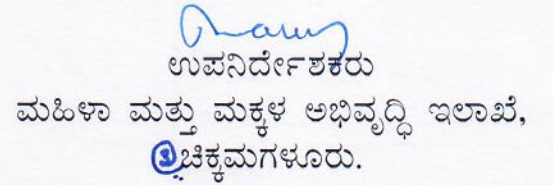 ಉಪನಿರ್ದೇಶಕರು
ಮಹಿಳಾ ಮತ್ತು ಮಕ್ಕಳ ಅಭಿವೃದ್ಧಿ ಇಲಾಖೆ,
ಚಿಕ್ಕಮಗಳೂರು.